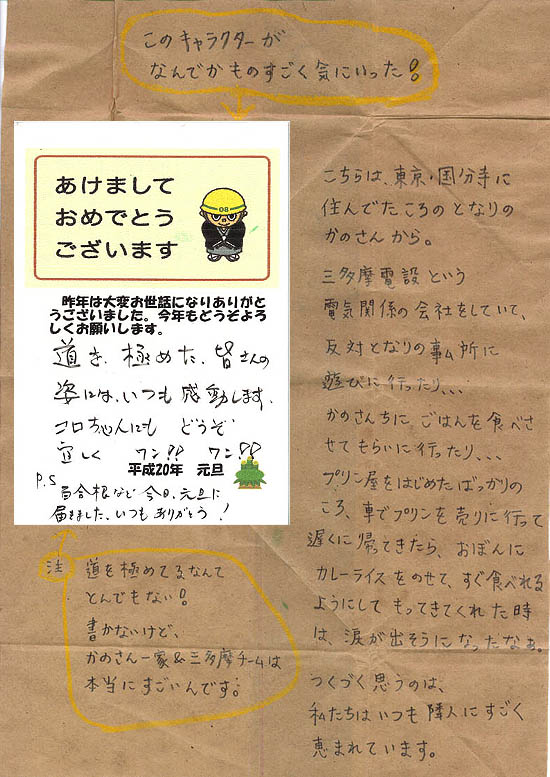 このキャラクターが
なんでかものすごく気にいった!
あけまして
おめでとう
ございます
08
昨年は大変お世話になりありがと
うございました。今年もどうぞよろ
しくお願いします。
道を極めた、皆さんの
姿には、いつも感動します。
コロちゃんにも どうぞ
宜しく ワン!! ワン!!
平成20年 元旦
P.S
百合根など今日、元旦に
届きました、いつもありがとう!
注
道を極めてるなんて
とんでもない!
書かないけど、
かのさん一家&三多摩チームは
本当にすごいんです。
こちらは、東京・国分寺に
住んでたころのとなりの
かのさんから。
三多摩電設という
電気関係の会社をしていて、
反対となりの事ム所に
遊びに行ったり、、、
かのさんちに ごはんを食べさ
せてもらいに行ったり、、、
プリン屋をはじめたばっかりの
ころ、車でプリンを売りに行って
遅くに帰ってきたら、おぼんに
カレーライスをのせて、すぐ食べれる
ようにして もってきてくれた時
は、涙が出そうになったなぁ。
つくづく思うのは、
私たちはいつも隣人にすごく
恵まれています。